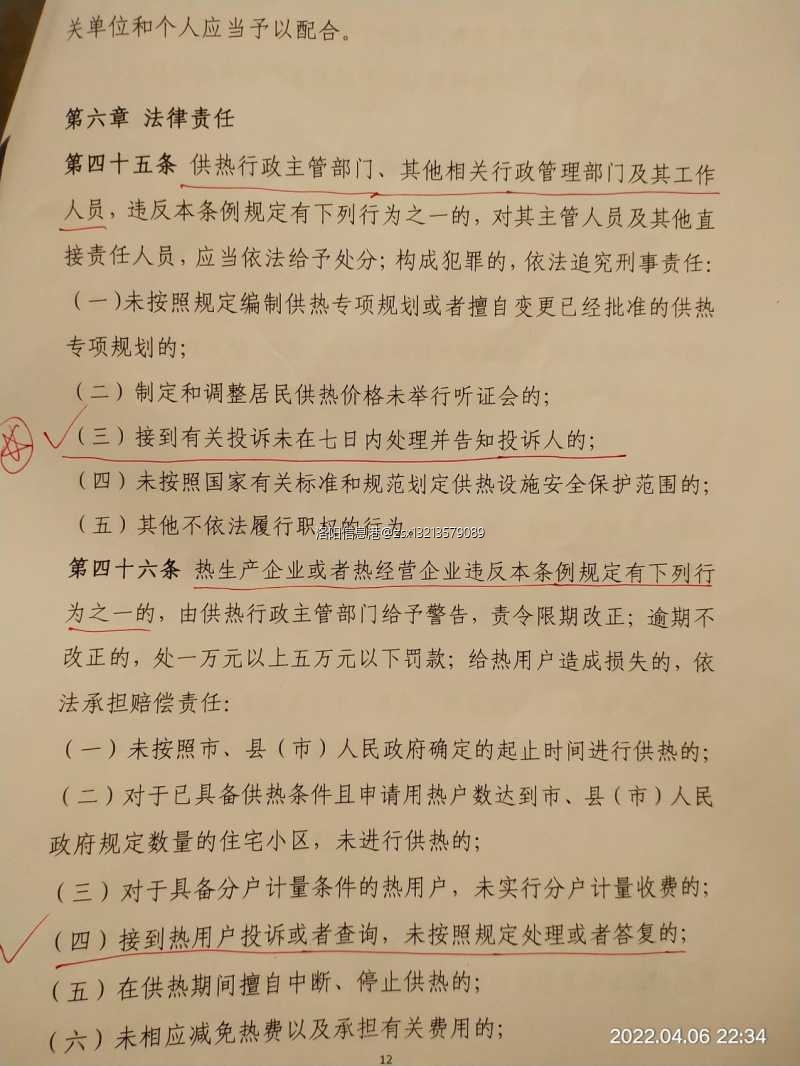 关单位和个人应当予以配合。
第六章 法律责任
第四十五条 供热行政主管部门、其他相关行政管理部门及其工作
人员，违反本条例规定有下列行为之一的，对其主管人员及其他直
接责任人员，应当依法给予处分；构成犯罪的，依法追究刑事责任：
（一）未按照规定编制供热专项规划或者擅自变更已经批准的供热
专项规划的；
（二）制定和调整居民供热价格未举行听证会的；
（三）接到有关投诉未在七日内处理并告知投诉人的；
（四）未按照国家有关标准和规范划定供热设施安全保护范围的；
（五）其他不依法履行职权的行为
洛阳信息港@zsx13213579089
第四十六条 热生产企业或者热经营企业违反本条例规定有下列行
为之一的，由供热行政主管部门给予警告，责令限期改正；逾期不
改正的，处一万元以上五万元以下罚款；给热用户造成损失的，依
法承担赔偿责任：
（一）未按照市、县（市）人民政府确定的起止时间进行供热的；
（二）对于已具备供热条件且申请用热户数达到市、县（市）人民
政府规定数量的住宅小区，未进行供热的；
（三）对于具备分户计量条件的热用户，未实行分户计量收费的；
（四）接到热用户投诉或者查询，未按照规定处理或者答复的；
（五）在供热期间擅自中断、停止供热的；
（六）未相应减免热费以及承担有关费用的；
2022.04.06 22:34
12